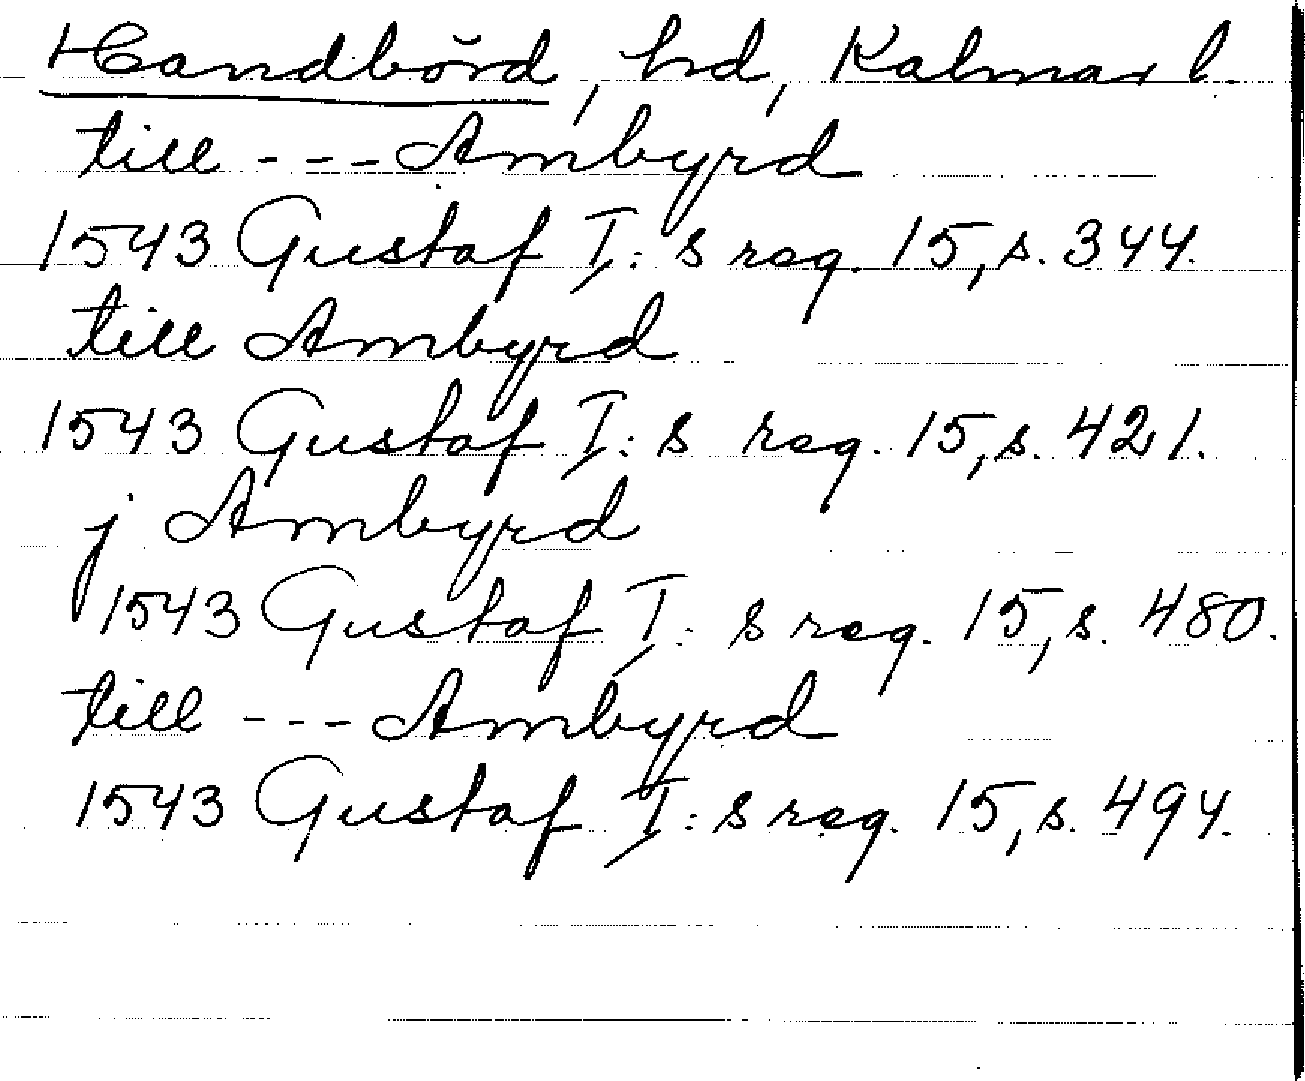 Handbörd, hd, Kalmar l.
till --- Ambyrd
1543 Gustaf I:s reg. 15, s. 344.
till Ambyrd
1543 Gustaf I:s reg. 15, s. 421.
j Ambyrd
1543 Gustaf I:s reg. 15, s. 480.
till --- Ambyrd
1543 Gustaf I:s reg. 15, s. 494.